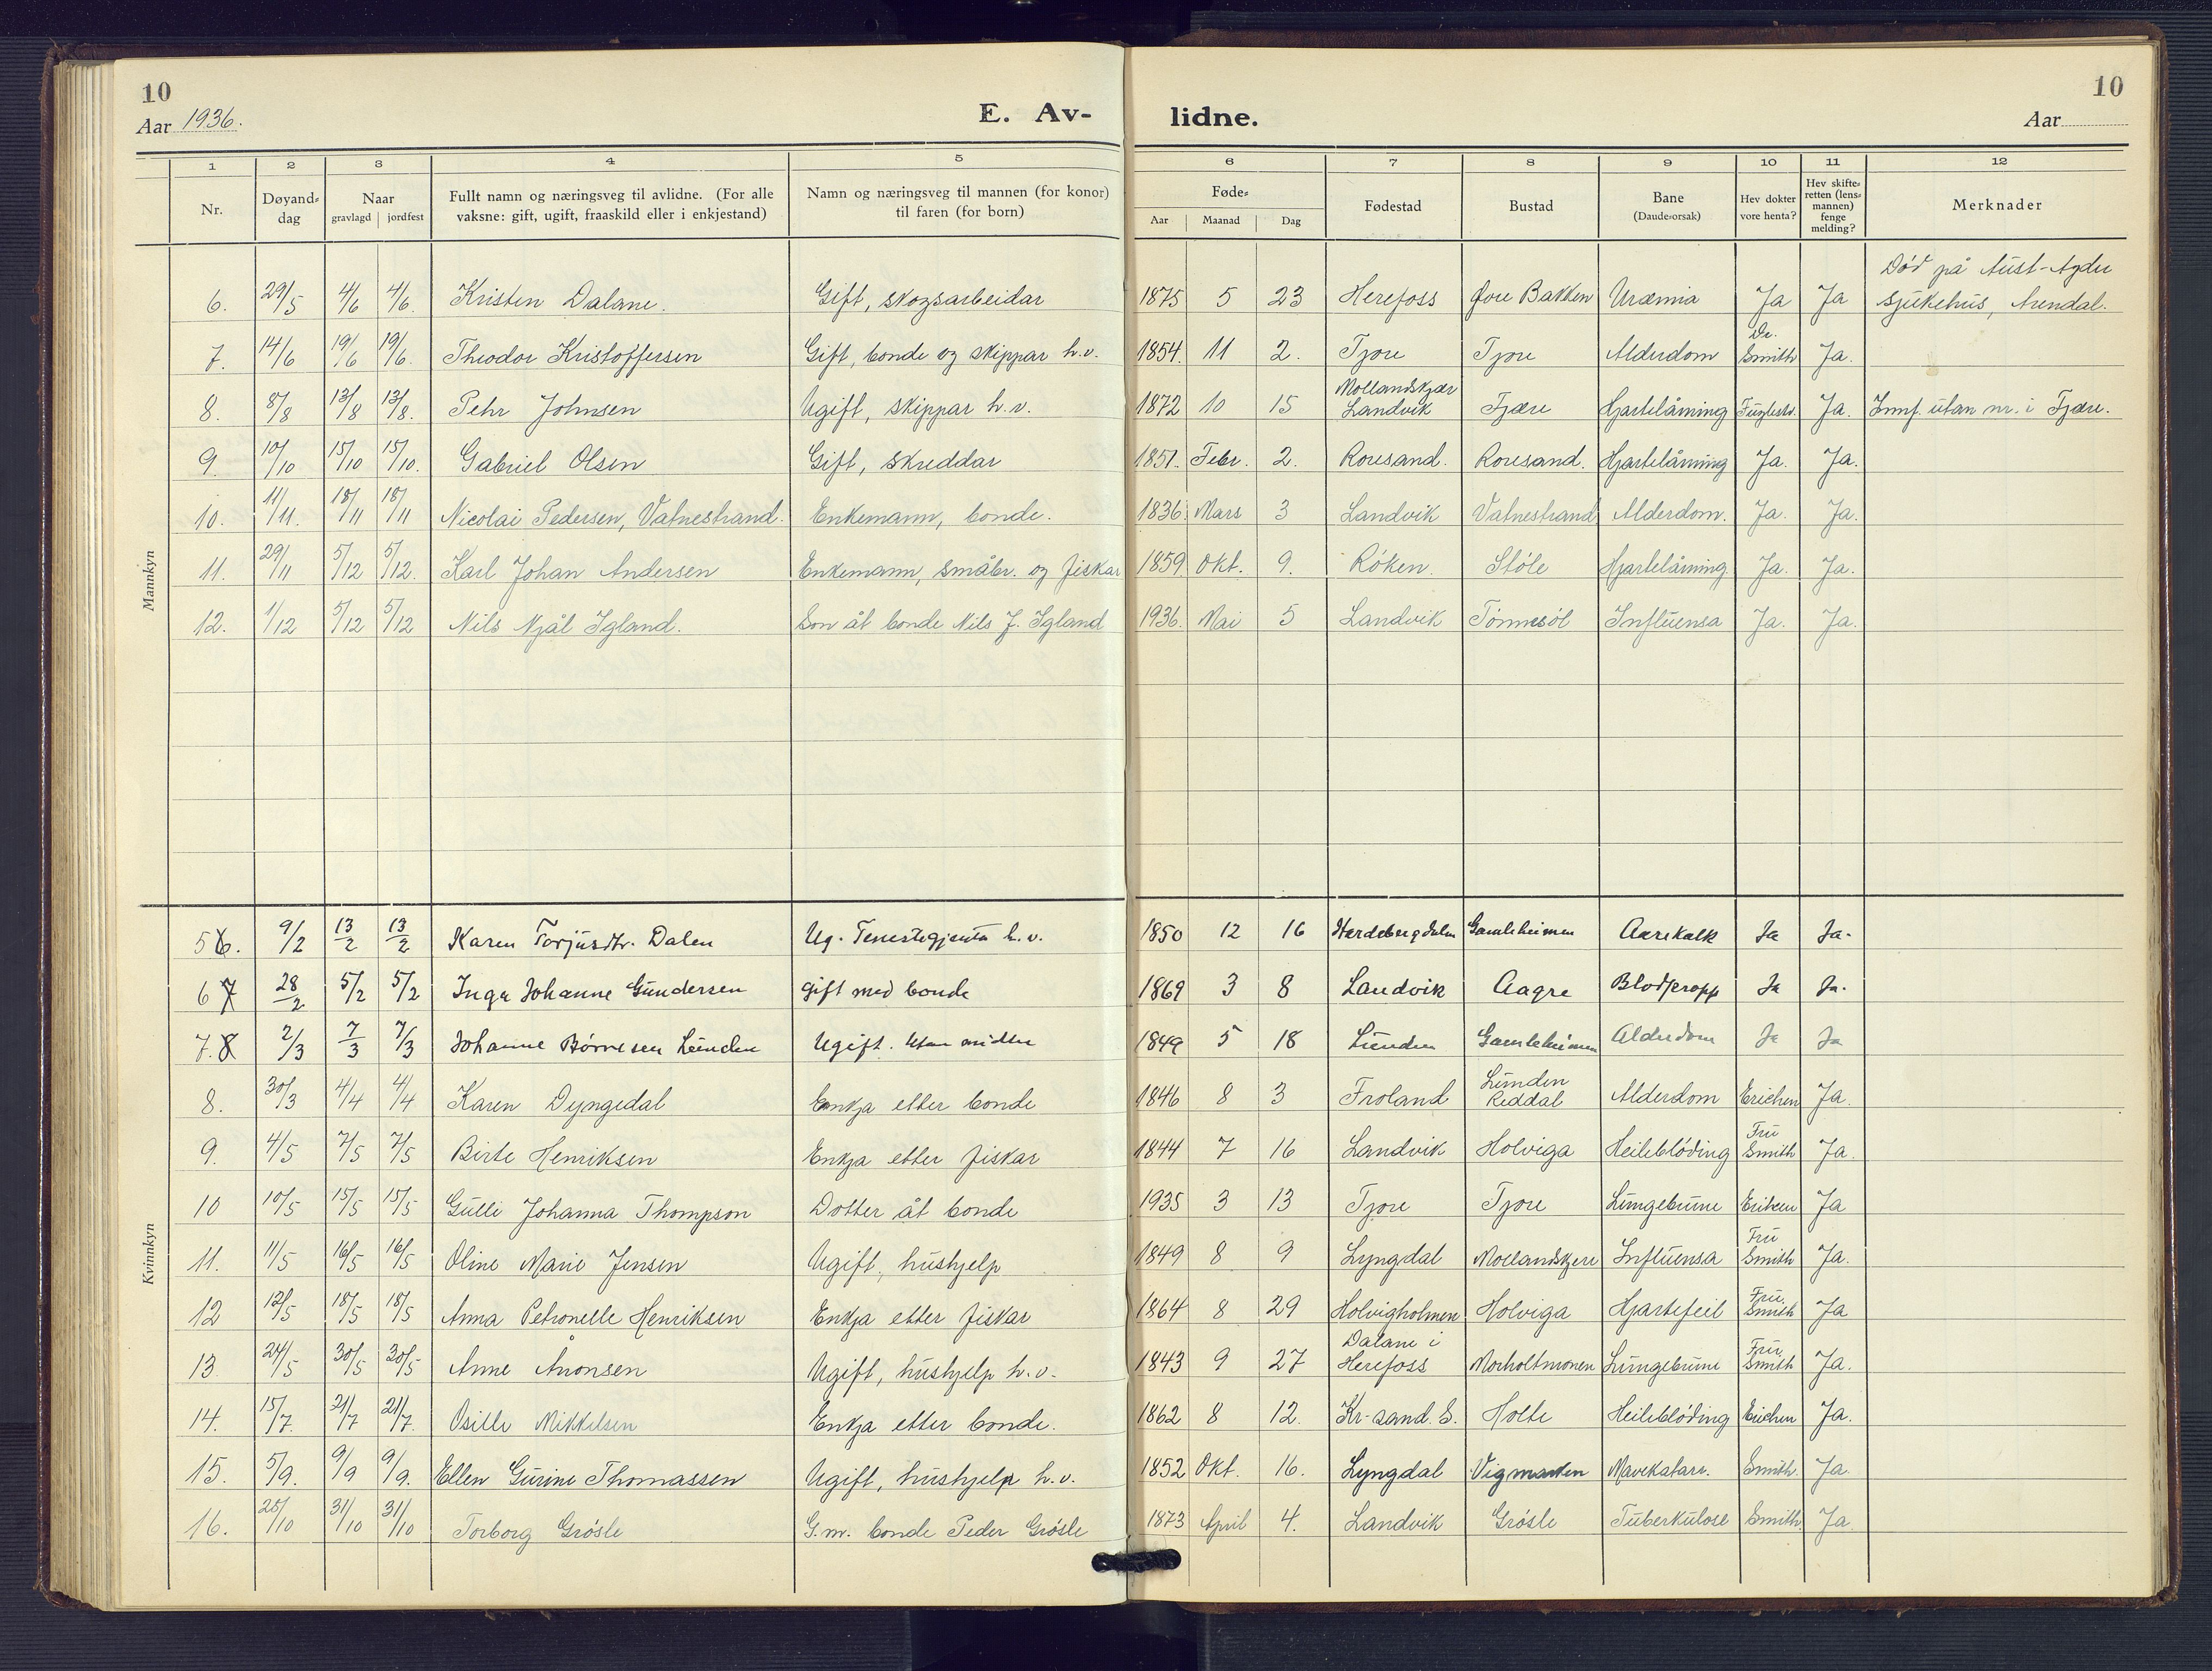 10
10
Aar 1936.
E. Av-
lidne.
Aar
1 2 3 4 5 6 7 8 9 10 11 12
Nr. Døyand-dag Naar gravlagd jordfest Fullt namn og næringsveg til avlidne. (For alle vaksne: gift, ugift, fraaskild eller i enkjestand) Namn og næringsveg til mannen (for konor) til faren (for born) Føde- Aar Maanad Dag Fødestad Bustad Bane (Daude-orsak) Hev dokter vore henta? Hev skifte-retten (lens-mannen) fenge melding? Merknader
Mannkyn
6. 29/5 4/6 4/6. Kristen Dalane. Gift, skogsarbeidar 1875 5 23 Herefoss Øvre Bakken Uræmia Ja Ja Død på Aust-Agder sjukehus, Arendal.
7. 14/6 19/6 19/6. Theodor Kristoffersen Gift, bonde og skippar h.v. 1854. 11 2. Tjore Tjore Alderdom Dr. Smith Ja.
8. 8/8 13/8 13/8. Pehr Johnsen Ugift, skippar h.v. 1872 10 15 Mollandskjær Landvik Fjære Hjartelåming Ja. Innf. utan nr. i Fjære.
9. 10/10 15/10 15/10. Gabriel Olsen Gift, skreddar 1851. Febr. 2. Roresand. Roresand. Hjartelåming Ja. Ja.
10. 11/11. 18/11 18/11 Nicolai Pedersen, Vatnestrand. Enkemann, bonde. 1836 Mars 3 Landvik Vatnestrand Alderdom. Ja. Ja.
11. 29/11 5/12 5/12. Karl Johan Andersen Enkemann, småbr. og fiskar 1859 Okt. 9. Røken. Støle Hjartelåming. Ja. Ja.
12. 1/12 5/12 5/12 Nils Njål Igland. Son åt bonde Nils J. Igland 1936. Mai 5 Landvik Tønnesøl Influensa Ja. Ja.
Kvinnkyn
5 6. 9/2 13/2 13/2 Karen Torjusdtr. Dalen Ug. Tenestegjenta h.v. 1850 12 16 Gamleheimen Aarekalk Ja Ja.
6 7 28/2 5/2 5/2 Inga Johanne Gundersen gift med bonde 1869 3 8 Landvik Aagre Blodpropp Ja Ja.
7. 8 2/3 7/3 7/3 Johanne Børresen Lunden Ugift. Utan midlar 1849 5 18 Lunden Gamleheimen Alderdom Ja Ja
8. 30/3 4/4 4/4 Karen Dyngedal Enkja etter bonde 1846 8 3 Froland Lunden Reddal Alderdom Erichen Ja.
9. 4/5 7/5 7/5 Birte Henriksen Enkja etter fiskar 1844 7 16 Landvik Holviga Heilebløding Fru Smith Ja.
10 10/5 15/5 15/5 Gulli Johanna Thompson Dotter åt bonde 1935 3 13 Tjore Tjore Lungebune Eriksen Ja
11. 11/5 16/5 16/5 Oline Marie Jensen Ugift, hushjelp 1849 8 9 Lyngdal Mollandskjere Influensa Fru Smith Ja.
12 12/5 18/5 18/5 Anna Petronelle Henriksen Enkja etter fiskar 1864 8 29 Holvigholmene Holviga Hjartefeil Fru Smith Ja
13 24/5 30/5 30/5 Anne Åronsen Ugift, hushjelp h.v. 1843 9 27 Dalane i Herefoss Morholtmonen Lungebune Fru Smith Ja.
14. 15/7. 21/7 21/7. Osille Mikkelsen Enkja etter bonde. 1862 8 12. Kr-sand. S. Holte Heilebløding Erichen Ja.
15. 5/9. 9/9 9/9. Ellen Gurine Thomassen Ugift, hushjelp h.v. 1852 Okt. 16. Lyngdal Vigmarken Mavekatarr. Smith. Ja.
16. 25/10 31/10 31/10 Torborg Grøsle G.m. bonde Peder Grøsle 1873 April 4. Landvik Grøsle Tuberkulose Smith. Ja.